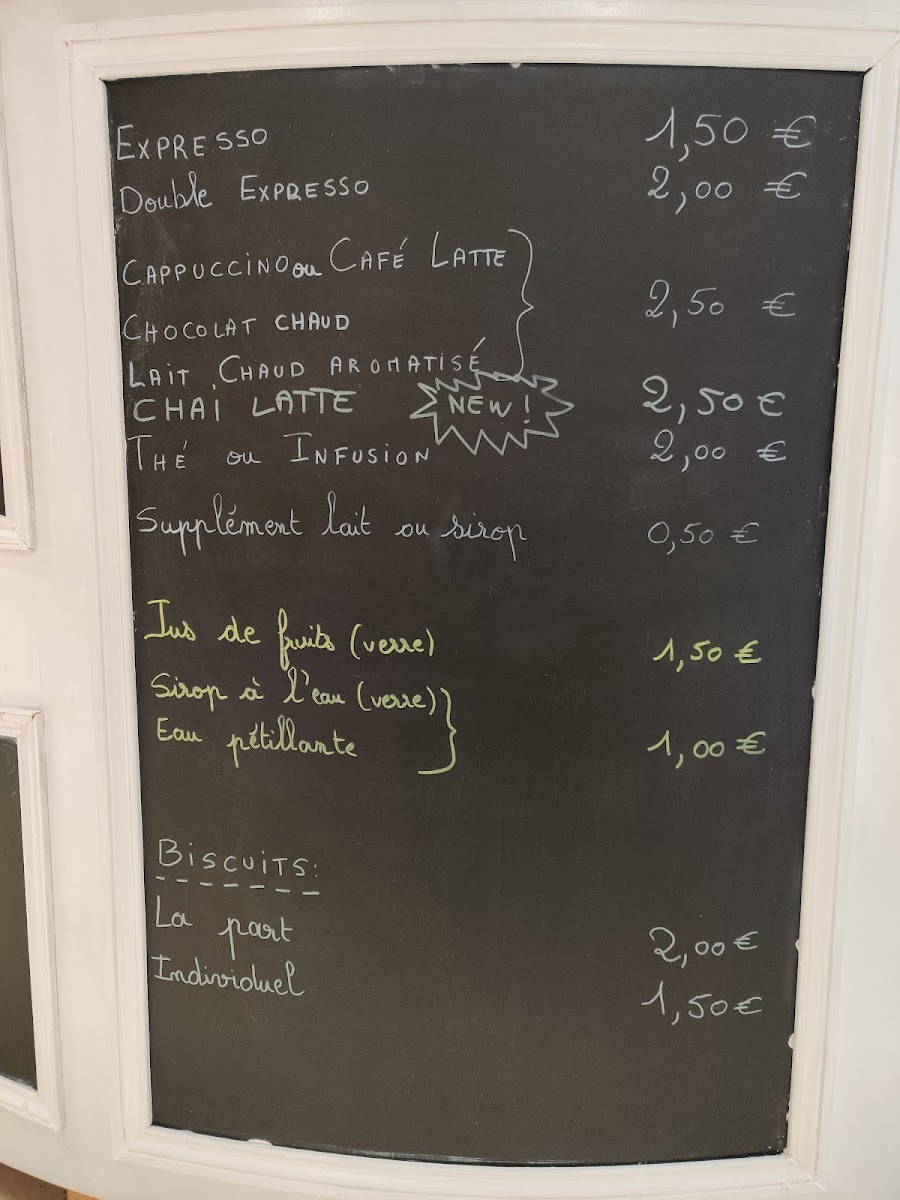 EXPRESSO 1,50 €
Double EXPRESSO 2,00 €
CAPPUCCINO ou CAFÉ LATTE
CHOCOLAT CHAUD 2,50 €
LAIT CHAUD AROMATISÉ
CHAI LATTE NEW! 2,50 €
THÉ ou INFUSION 2,00 €
Supplément lait ou sirop 0,50 €
Jus de fruits (verre) 1,50 €
Sirop à l'eau (verre)
Eau pétillante 1,00 €
BiSCUiTS:
La part 2,00 €
Individuel 1,50 €